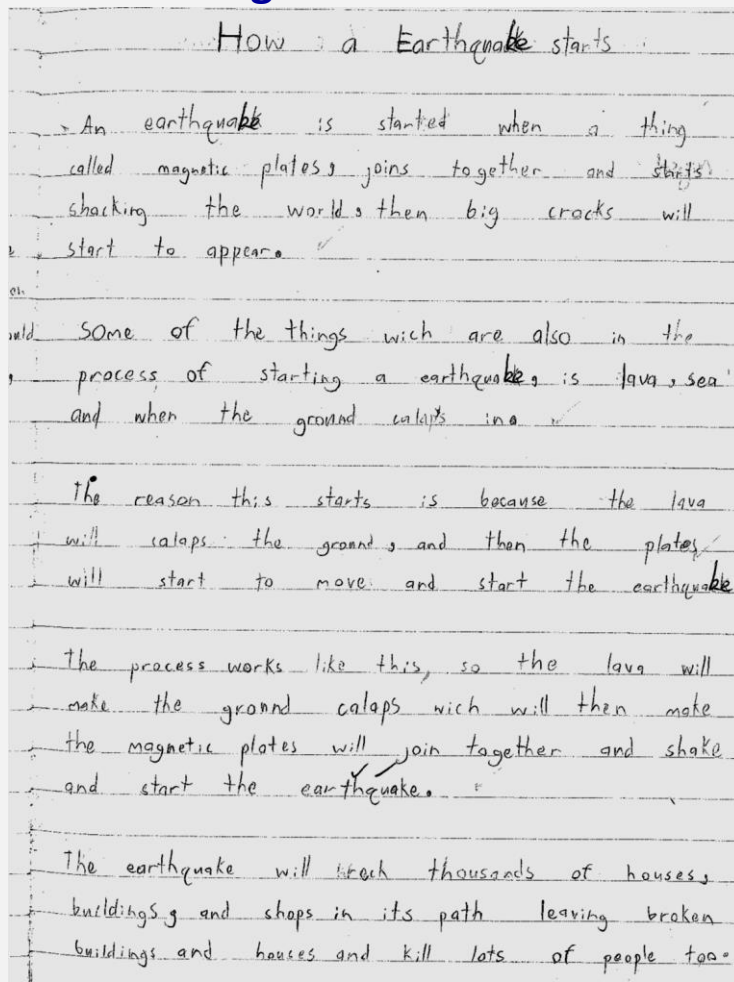 How a Earthquake starts
An earthquake is started when a thing
called magnetic plates, joins together and starts
shacking the world, then big cracks will
start to appear.
some of the things wich are also in the
process of starting a earthquake, is lava, sea
and when the ground calaps in.
The reason this starts is because the lava
will calaps the ground, and then the plates
will start to move and start the earthquake
The process works like this, so the lava will
make the ground calaps wich will then make
the magnetic plates will join together and shake
and start the earthquake.
The earthquake will thousands of houses,
buildings, and shops in its path leaving broken
buildings and houses and kill lots of people too.